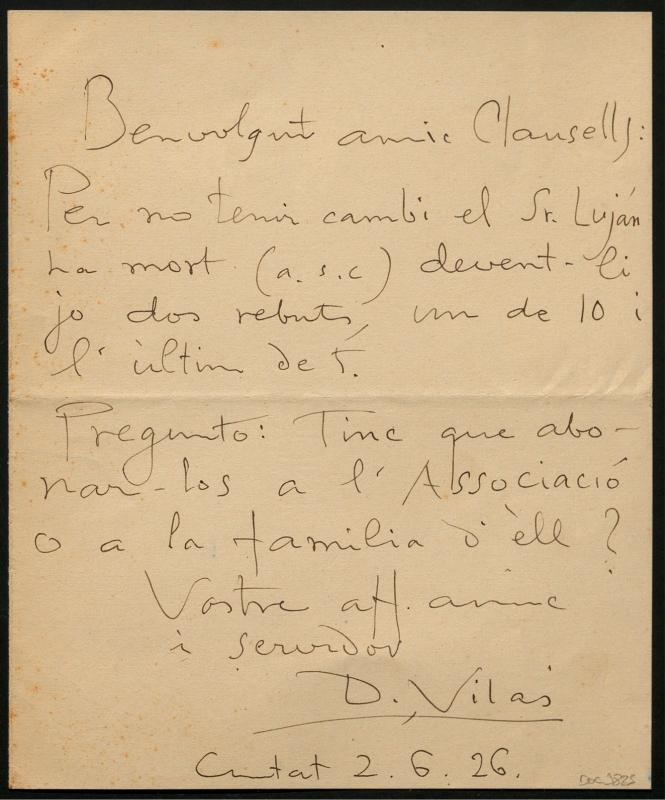 Benvolgut amic Clausells:
Per no tenir cambi el Sr. Luján
ha mort (a. s. c) devent-li
jo dos rebuts, un de 10 i
l' últim de 5.
Pregunto: Tinc que abo-
nar-los a l' Associació
o a la familia d' èll ?
Vostre aff. amic
i servidor
D. Vilas
Ciutat 2. 6. 26.